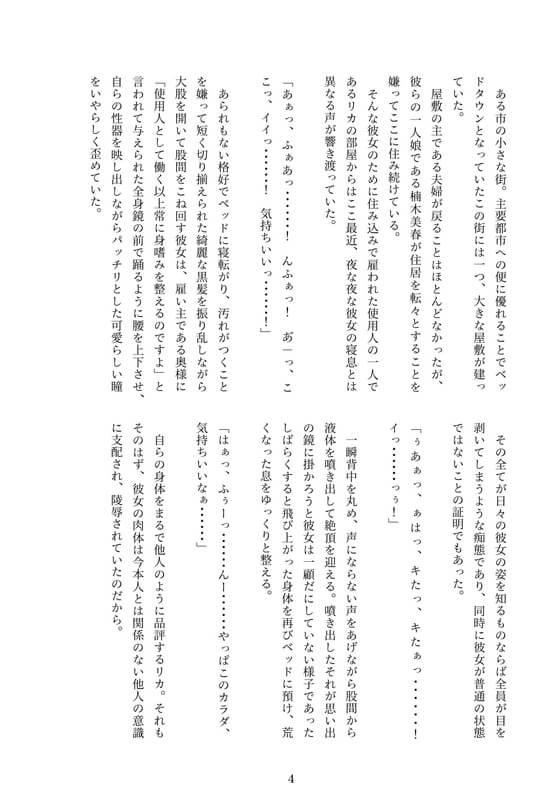 ある市の小さな街。主要都市への便に優れることでベッ
ドタウンとなっていたこの街には一つ、大きな屋敷が建っ
ていた。
屋敷の主である夫婦が戻ることはほとんどなかったが、
彼らの一人娘である楠木美春が住居を転々とすることを
嫌ってここに住み続けている。
そんな彼女のために住み込みで雇われた使用人の一人で
あるリカの部屋からはここ最近、夜な夜な彼女の寝息とは
異なる声が響き渡っていた。
「あぁっ、ふぁあっ・・・・・・！　んふぁっ！　あ゛―っ、こ
こっ、イイっ・・・・・・！　気持ちいいっ・・・・・・！」
あられもない格好でベッドに寝転がり、汚れがつくこと
を嫌って短く切り揃えられた綺麗な黒髪を振り乱しながら
大股を開いて股間をこね回す彼女は、雇い主である奥様に
「使用人として働く以上常に身嗜みを整えるのですよ」と
言われて与えられた全身鏡の前で踊るように腰を上下させ、
自らの性器を映し出しながらパッチリとした可愛らしい瞳
をいやらしく歪めていた。
その全てが日々の彼女の姿を知るものならば全員が目を
剥いてしまうような痴態であり、同時に彼女が普通の状態
ではないことの証明でもあった。
「ぅあぁっ、ぁはっ、キたっ、キたぁっ・・・・・・！
イっ・・・・・っぅ！」
一瞬背中を丸め、声にならない声をあげながら股間から
液体を噴き出して絶頂を迎える。噴き出したそれが思い出
の鏡に掛かろうと彼女は一顧だにしていない様子であった
しばらくすると飛び上がった身体を再びベッドに預け、荒
くなった息をゆっくりと整える。
「はぁっ、ふぅーっ・・・・・・んー・・・・・・やっぱこのカラダ、
気持ちいいなぁ・・・・・・」
自らの身体をまるで他人のように品評するリカ。それも
そのはず、彼女の肉体は今本人とは関係のない他人の意識
に支配され、陵辱されていたのだから。
4